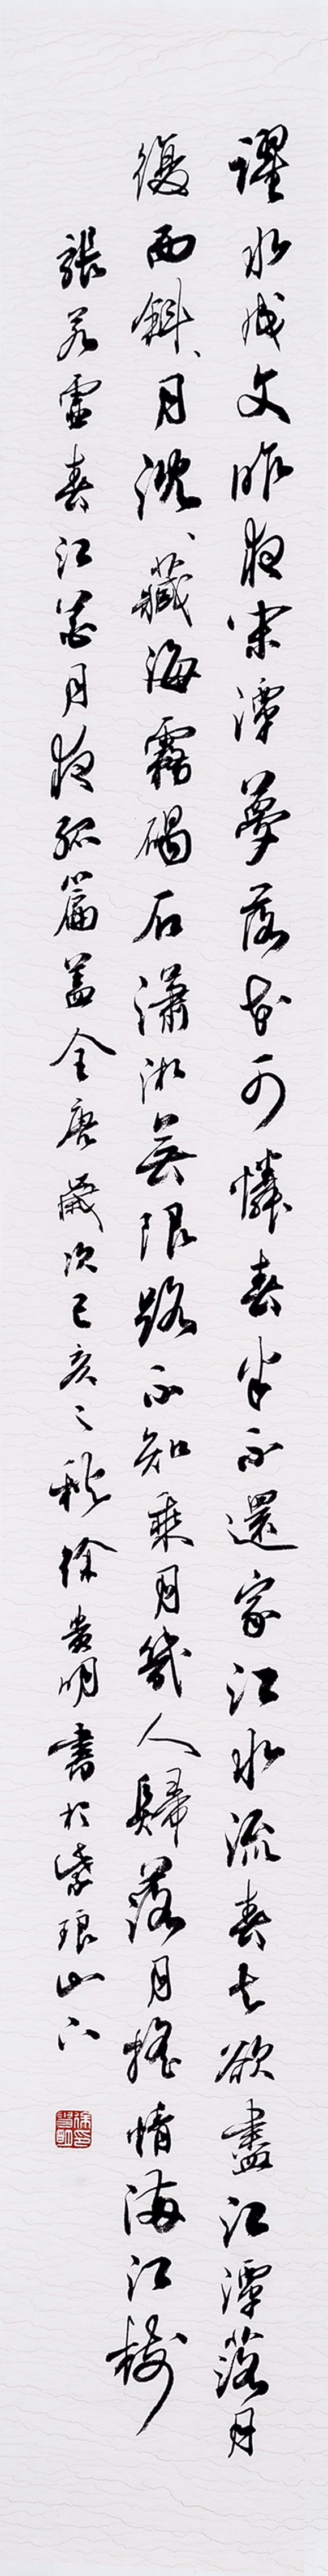 躍水成文昨夜閑潭夢落花可憐春半不還家江水流春去欲盡江潭落月
復西斜斜月沈沈藏海霧碣石瀟湘無限路不知乘月幾人歸落月搖情滿江樹
張若虛春江花月夜孤篇蓋全唐歲次己亥之秋徐貴明書於紫琅山下